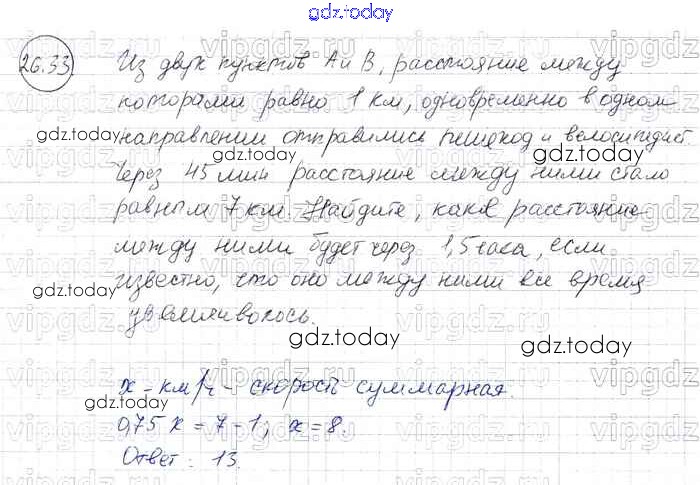 gdz.today
26.33 Из двух пунктов А и В, расстояние между
которами равно 1 км, одновременно в одном
направлении отправились пешеход и велосипедист.
Через 45 мин расстояние между ними стало
равным 7 км. Найдите, какое расстояние
между ними будет через 1,5 часа, если
известно, что оно между ними все время
увеличивалось.
x - км/ч - скорость суммарная.
0,75 x = 7 - 1; x = 8.
Ответ: 13.
gdz.today
gdz.today
gdz.today
gdz.today
gdz.today
gdz.today
gdz.today
vipgdz.ru